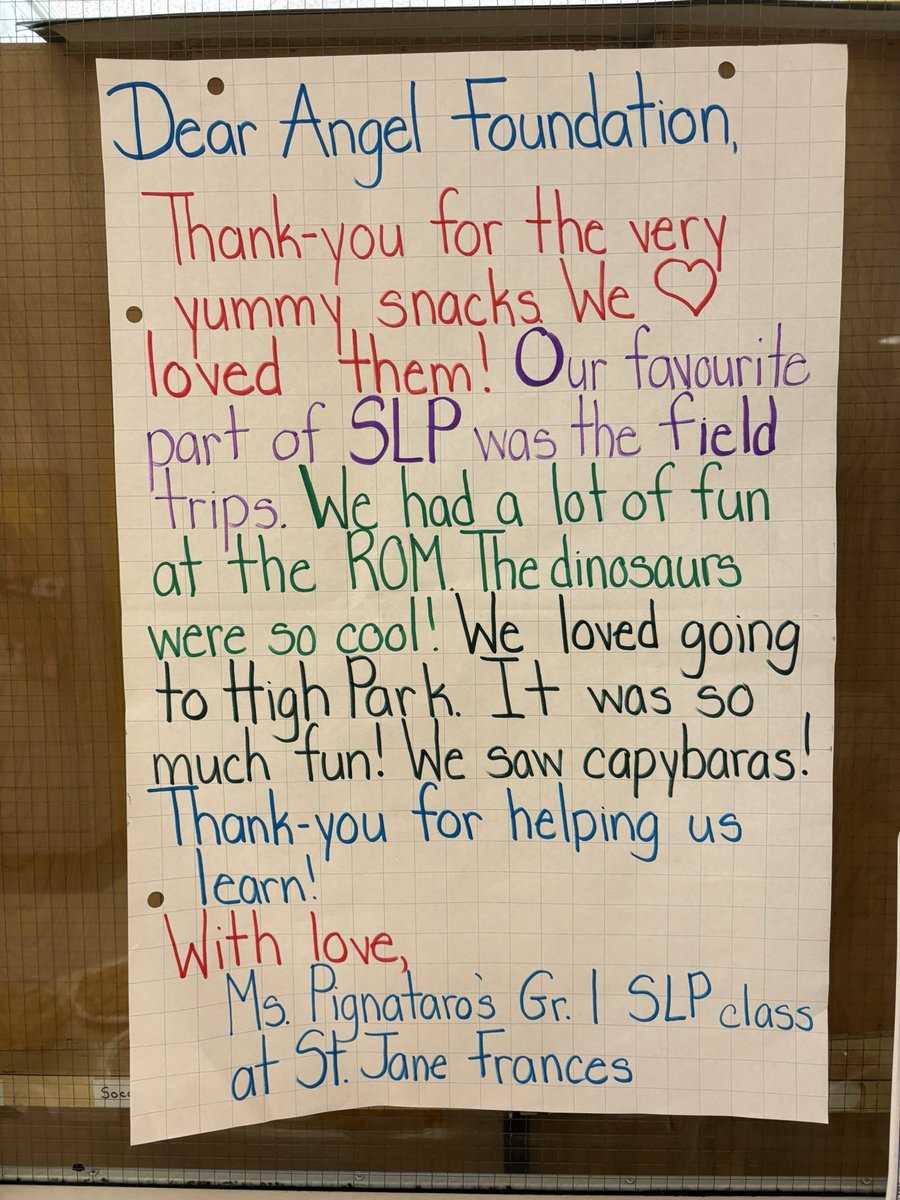 Dear Angel Foundation,
Thank-you for the very
yummy snacks. We ♡
loved them! Our favourite
part of SLP was the field
trips. We had a lot of fun
at the ROM. The dinosaurs
were so cool! We loved going
to High Park. It was so
much fun! We saw capybaras!
Thank-you for helping us
learn!
With love,
Ms. Pignataro's Gr. 1 SLP class
at St. Jane Frances